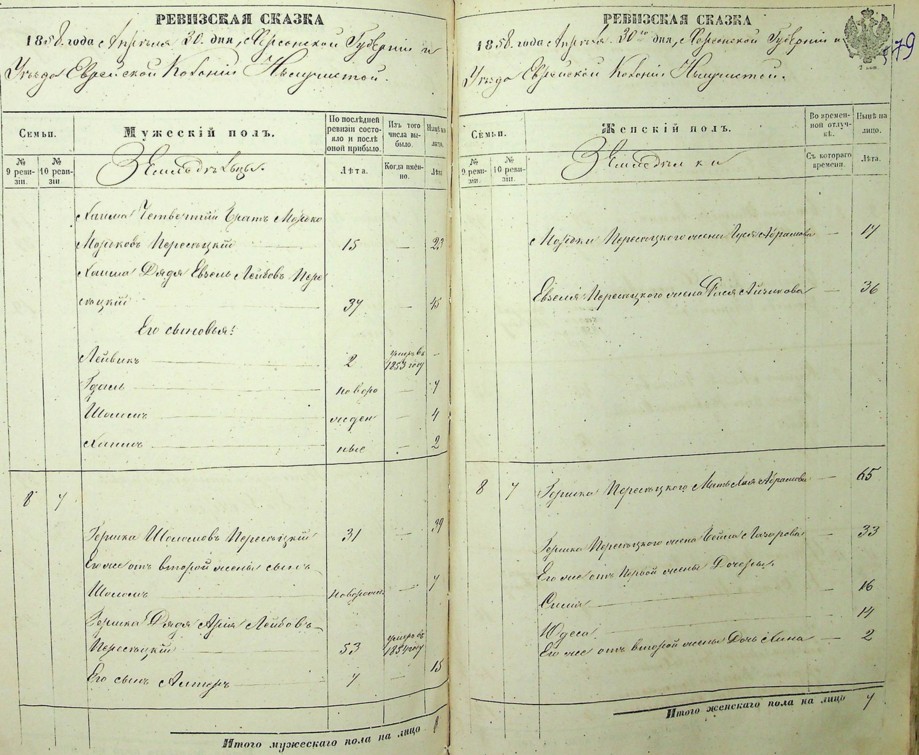 РЕВИЗСКАЯ СКАЗКА
1858 года Апреля 30 дня, Херсонской Губерніи и
Уѣзда Еврейской Колоніи
Семьи.
Мужескій полъ.
По послѣдней ревизіи состояло и послѣ оной прибыло.
Изъ того числа выбыло.
Нынѣ на лицо.
№ 9 ревизіи.
№ 10 ревизіи
Земледѣльцы.
Лѣта.
Когда имѣнно.
Лѣта
Хаима Четвертый Братъ Мошко
Мошковъ Пересоцкій 15 — 23
Хаима Дядя Евзель Лейбовъ Пере
соцкій 37 — 45
Его сыновья:
Лейбикъ 2 умеръ въ 1853 году —
новоро — 7
Шоломъ жден — 4
ные — 2
8 7
Шоломовъ Пересоцкій 31 — 39
Его же отъ второй жены сынъ
Шоломъ новорожд. — 7
Дядя Арія Лейбовъ
Пересоцкій 53 умеръ въ 1854 году
Его сынъ Алтеръ 7 — 15
Итого мужескаго пола на лицо 8
РЕВИЗСКАЯ СКАЗКА
1858 года Апреля 30го дня, Херсонской Губерніи и
Уѣзда Еврейской Колоніи
79
Семьи.
Женскій полъ.
Во временной отлучкѣ.
Нынѣ на лицо.
№ 9 ревизіи.
№ 10 ревизіи.
Земледѣлки
Съ котораго времени.
Лѣта.
Мошки Пересоцкого жена Абрамова — 17
Евзеля Пересоцкого жена — 36
8 7 Пересоцкого Мать Абрамова — 65
Пересоцкого жена Лазарова — 33
Его же отъ первой жены Дочери
— 16
Юдеса — 14
Его же отъ второй жены Дочь — 2
Итого женскаго пола на лицо 7